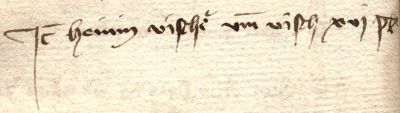 It heinin vischer um visch xvi pf